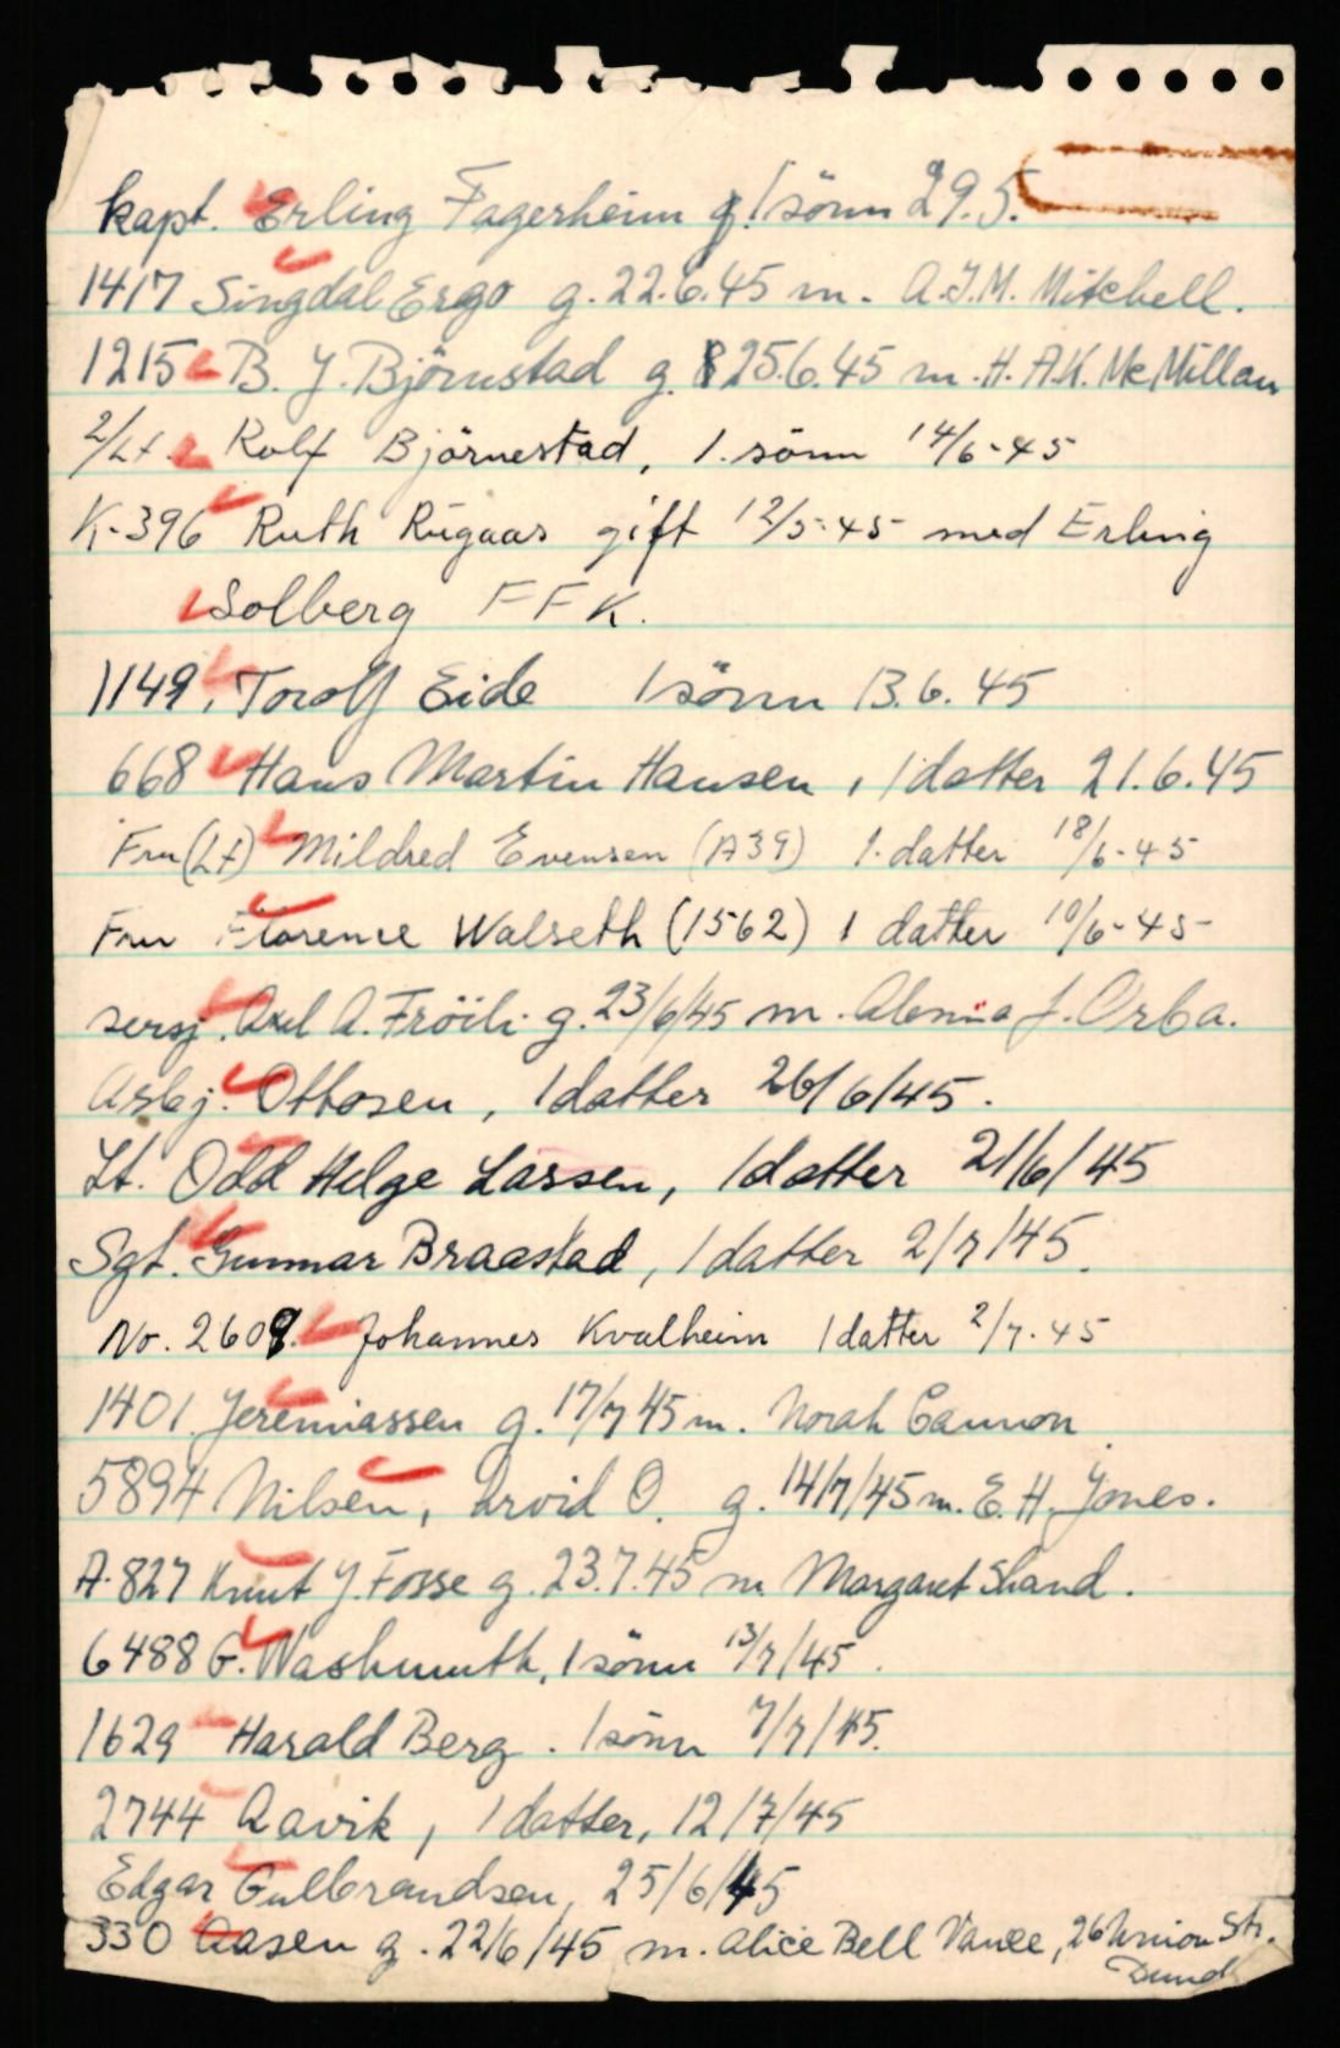 kapt. Erling Fagerheim 1 sönn 29.5.
1417 Singdal Ergo g. 22.6.45 m. A.J.M. Mitchell.
1215 B. J. Björnstad g. 25.6.45 m. H. A.K. Mc Millan
2/Lt. Rolf Björnestad, 1. sönn 14/6-45
K-396 Ruth Rügaas gift 12/5-45 med Erling
Solberg FFK.
1149, Torolf Eide 1 sönn 13.6.45
668 Hans Martin Hansen, 1 datter 21.6.45
Fru (Lt) Mildred Evensen (A39) 1. datter 18/6-45
Fru Florence Walseth (1562) 1 datter 10/6-45
sersj. Axel A. Fröili g. 23/6/45 m. J. Orba.
Asbj. Ottosen, 1 datter 26/6/45.
Lt. Odd Helge Lassen, 1 datter 21/6/45
Sgt. Gunnar Braastad, 1 datter 2/7/45.
No. 2609. Johannes Kvalheim 1 datter 2/7.45
1401. Jeremiassen g. 17/7 45 m. Norah Cannon
5894 Nilsen, Arvid O. g. 14/7/45 m. E. H. Jones.
A-827 Knut J. Fosse g. 23.7.45 m. Margaret Shand.
6488 G. Washmuth, 1 sönn 13/7/45.
1629 Harald Berg. 1 sönn 7/7/45.
2744 Aavik, 1 datter, 12/7/45
Edgar Gulbrandsen, 25/6/45
330 Aasen g. 22/6/45 m. Alice Bell Vance, 26 Union Str.
Dund